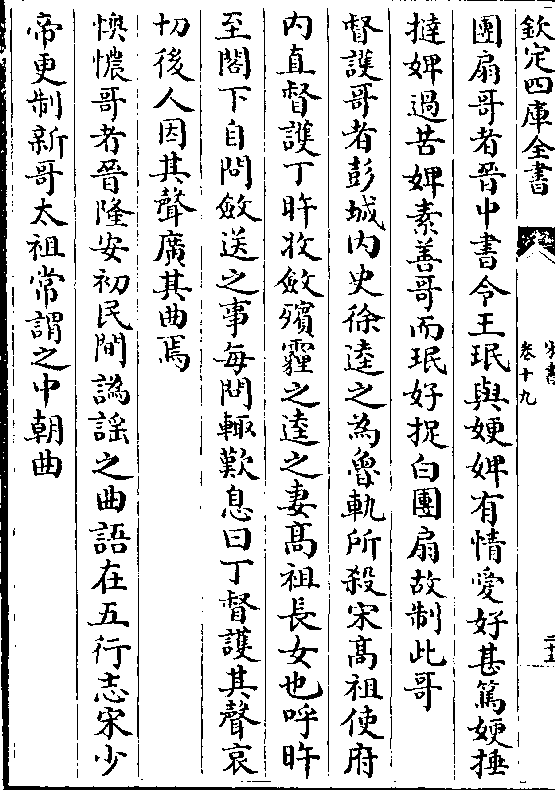 欽定四庫全書
宋書
卷十九
二十五
團扇哥者晉中書令王珉與㛐婢有情愛好甚篤㛐捶
撻婢過苦婢素善哥而珉好捉白團扇故制此哥
督護哥者彭城内史徐逵之為魯軌所殺宋髙祖使府
内直督護丁旿收斂殯霾之逵之妻髙祖長女也呼旿
至閤下自問斂送之事每問輒歎息曰丁督護其聲哀
切後人因其聲廣其曲焉
懊憹哥者晉隆安初民間譌謡之曲語在五行志宋少
帝更制新哥太祖常謂之中朝曲